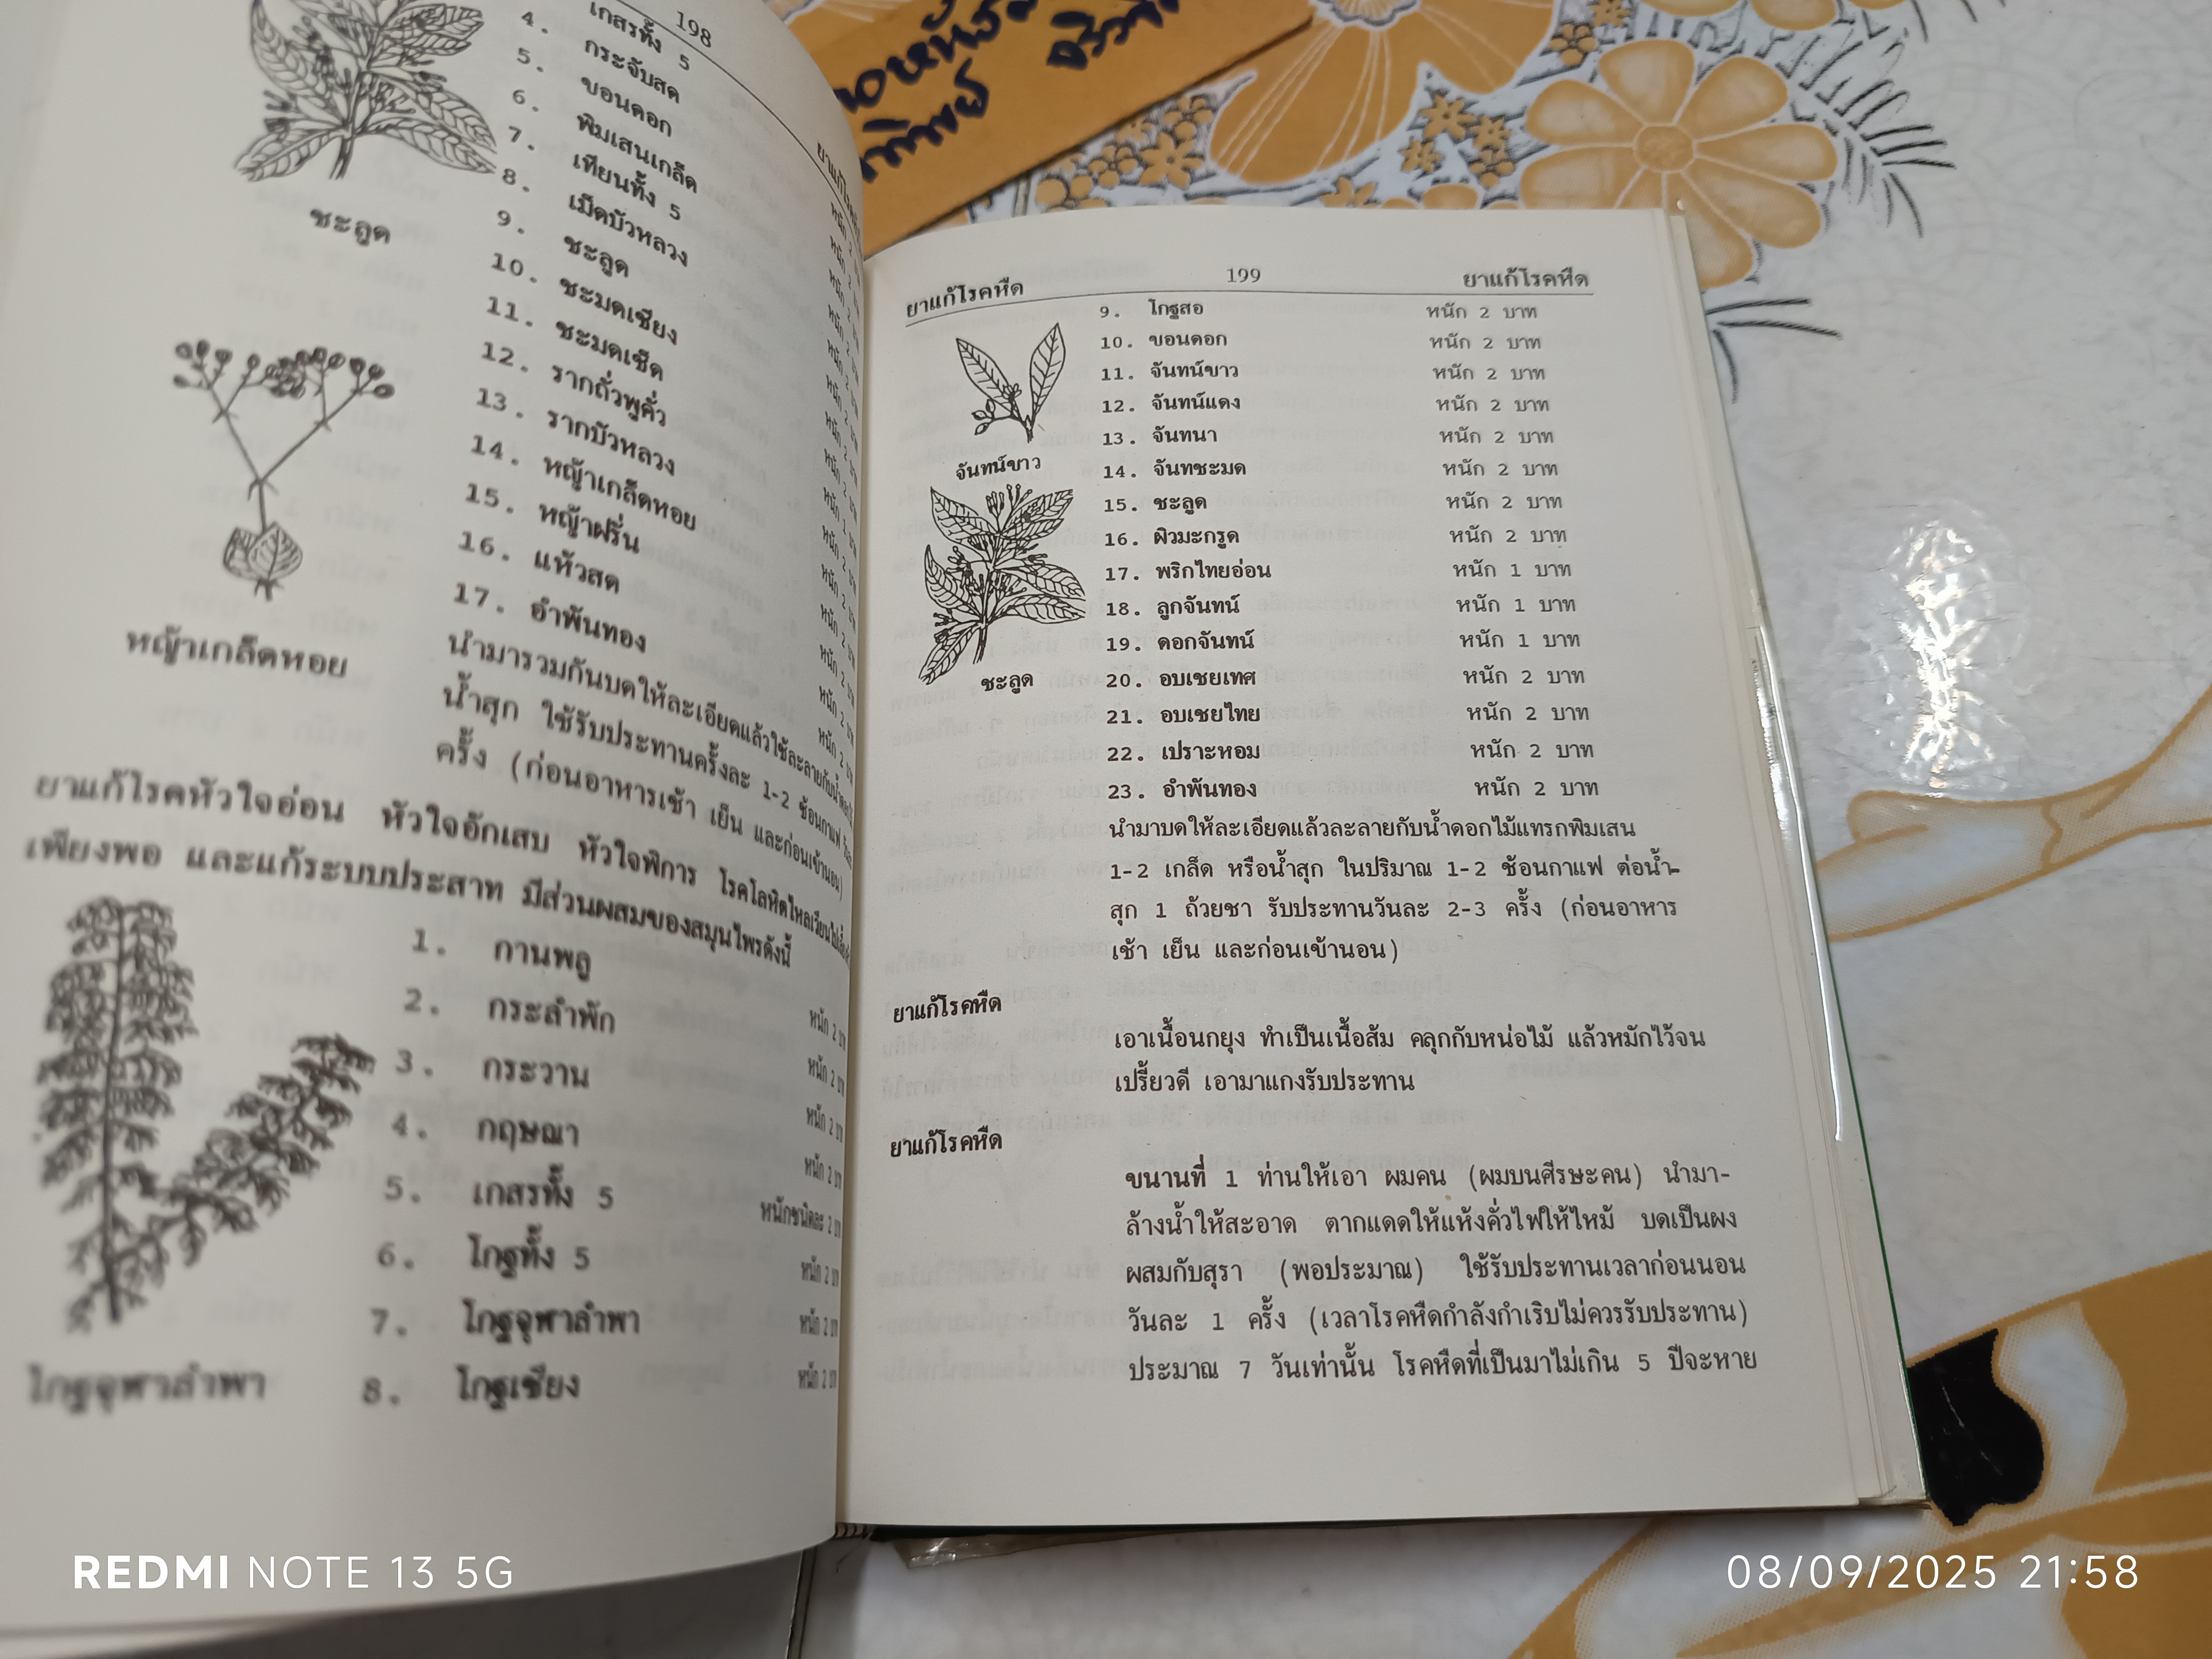 198
4. เกสรทั้ง 5
5. กระจับสด
6. ขอนดอก
7. พิมเสนเกล็ด
8. เทียนทั้ง 5
9. เม็ดบัวหลวง
10. ชะลูด
11. ชะมดเชียง
12. ชะมดเช็ด
13. รากถั่วพูคั่ว
14. รากบัวหลวง
15. หญ้าเกล็ดหอย
16. หญ้าฝรั่น
17. แห้วสด
อำพันทอง
ชะลูด
หญ้าเกล็ดหอย
นำมารวมกันบดให้ละเอียดแล้วใช้ละลายกับ
น้ำสุก ใช้รับประทานครั้งละ 1-2 ช้อนกาแฟ
ครั้ง (ก่อนอาหารเช้า เย็น และก่อนเข้านอน)
ยาแก้โรคหัวใจอ่อน หัวใจอักเสบ หัวใจพิการ โรคโลหิตไหลเวียน
เพียงพอ และแก้ระบบประสาท มีส่วนผสมของสมุนไพรดังนี้
1. กานพลู หนัก 2
2. กระลำพัก หนัก 2
3. กระวาน หนัก 2
4. กฤษณา หนัก 2
5. เกสรทั้ง 5 หนักชนิดละ 2
6. โกฐทั้ง 5 หนัก 2
7. โกฐจุฬาลำพา หนัก 2
8. โกฐเชียง หนัก 2
โกฐจุฬาลำพา
ยาแก้โรคหืด 199 ยาแก้โรคหืด
9. โกฐสอ หนัก 2 บาท
10. ขอนดอก หนัก 2 บาท
11. จันทน์ขาว หนัก 2 บาท
12. จันทน์แดง หนัก 2 บาท
13. จันทนา หนัก 2 บาท
14. จันทชะมด หนัก 2 บาท
15. ชะลูด หนัก 2 บาท
16. ผิวมะกรูด หนัก 2 บาท
17. พริกไทยอ่อน หนัก 1 บาท
18. ลูกจันทน์ หนัก 1 บาท
19. ดอกจันทน์ หนัก 1 บาท
20. อบเชยเทศ หนัก 2 บาท
21. อบเชยไทย หนัก 2 บาท
22. เปราะหอม หนัก 2 บาท
23. อำพันทอง หนัก 2 บาท
จันทน์ขาว
ชะลูด
นำมาบดให้ละเอียดแล้วละลายกับน้ำดอกไม้แทรกพิมเสน
1-2 เกล็ด หรือน้ำสุก ในปริมาณ 1-2 ช้อนกาแฟ ต่อน้ำ-
สุก 1 ถ้วยชา รับประทานวันละ 2-3 ครั้ง (ก่อนอาหาร
เช้า เย็น และก่อนเข้านอน)
ยาแก้โรคหืด
เอาเนื้อนกยุง ทำเป็นเนื้อส้ม คลุกกับหน่อไม้ แล้วหมักไว้จน
เปรี้ยวดี เอามาแกงรับประทาน
ยาแก้โรคหืด
ขนานที่ 1 ท่านให้เอา ผมคน (ผมบนศีรษะคน) นำมา-
ล้างน้ำให้สะอาด ตากแดดให้แห้งคั่วไฟให้ไหม้ บดเป็นผง
ผสมกับสุรา (พอประมาณ) ใช้รับประทานเวลาก่อนนอน
วันละ 1 ครั้ง (เวลาโรคหืดกำลังกำเริบไม่ควรรับประทาน)
ประมาณ 7 วันเท่านั้น โรคหืดที่เป็นมาไม่เกิน 5 ปีจะหาย
REDMI NOTE 13 5G
08/09/2025 21:58